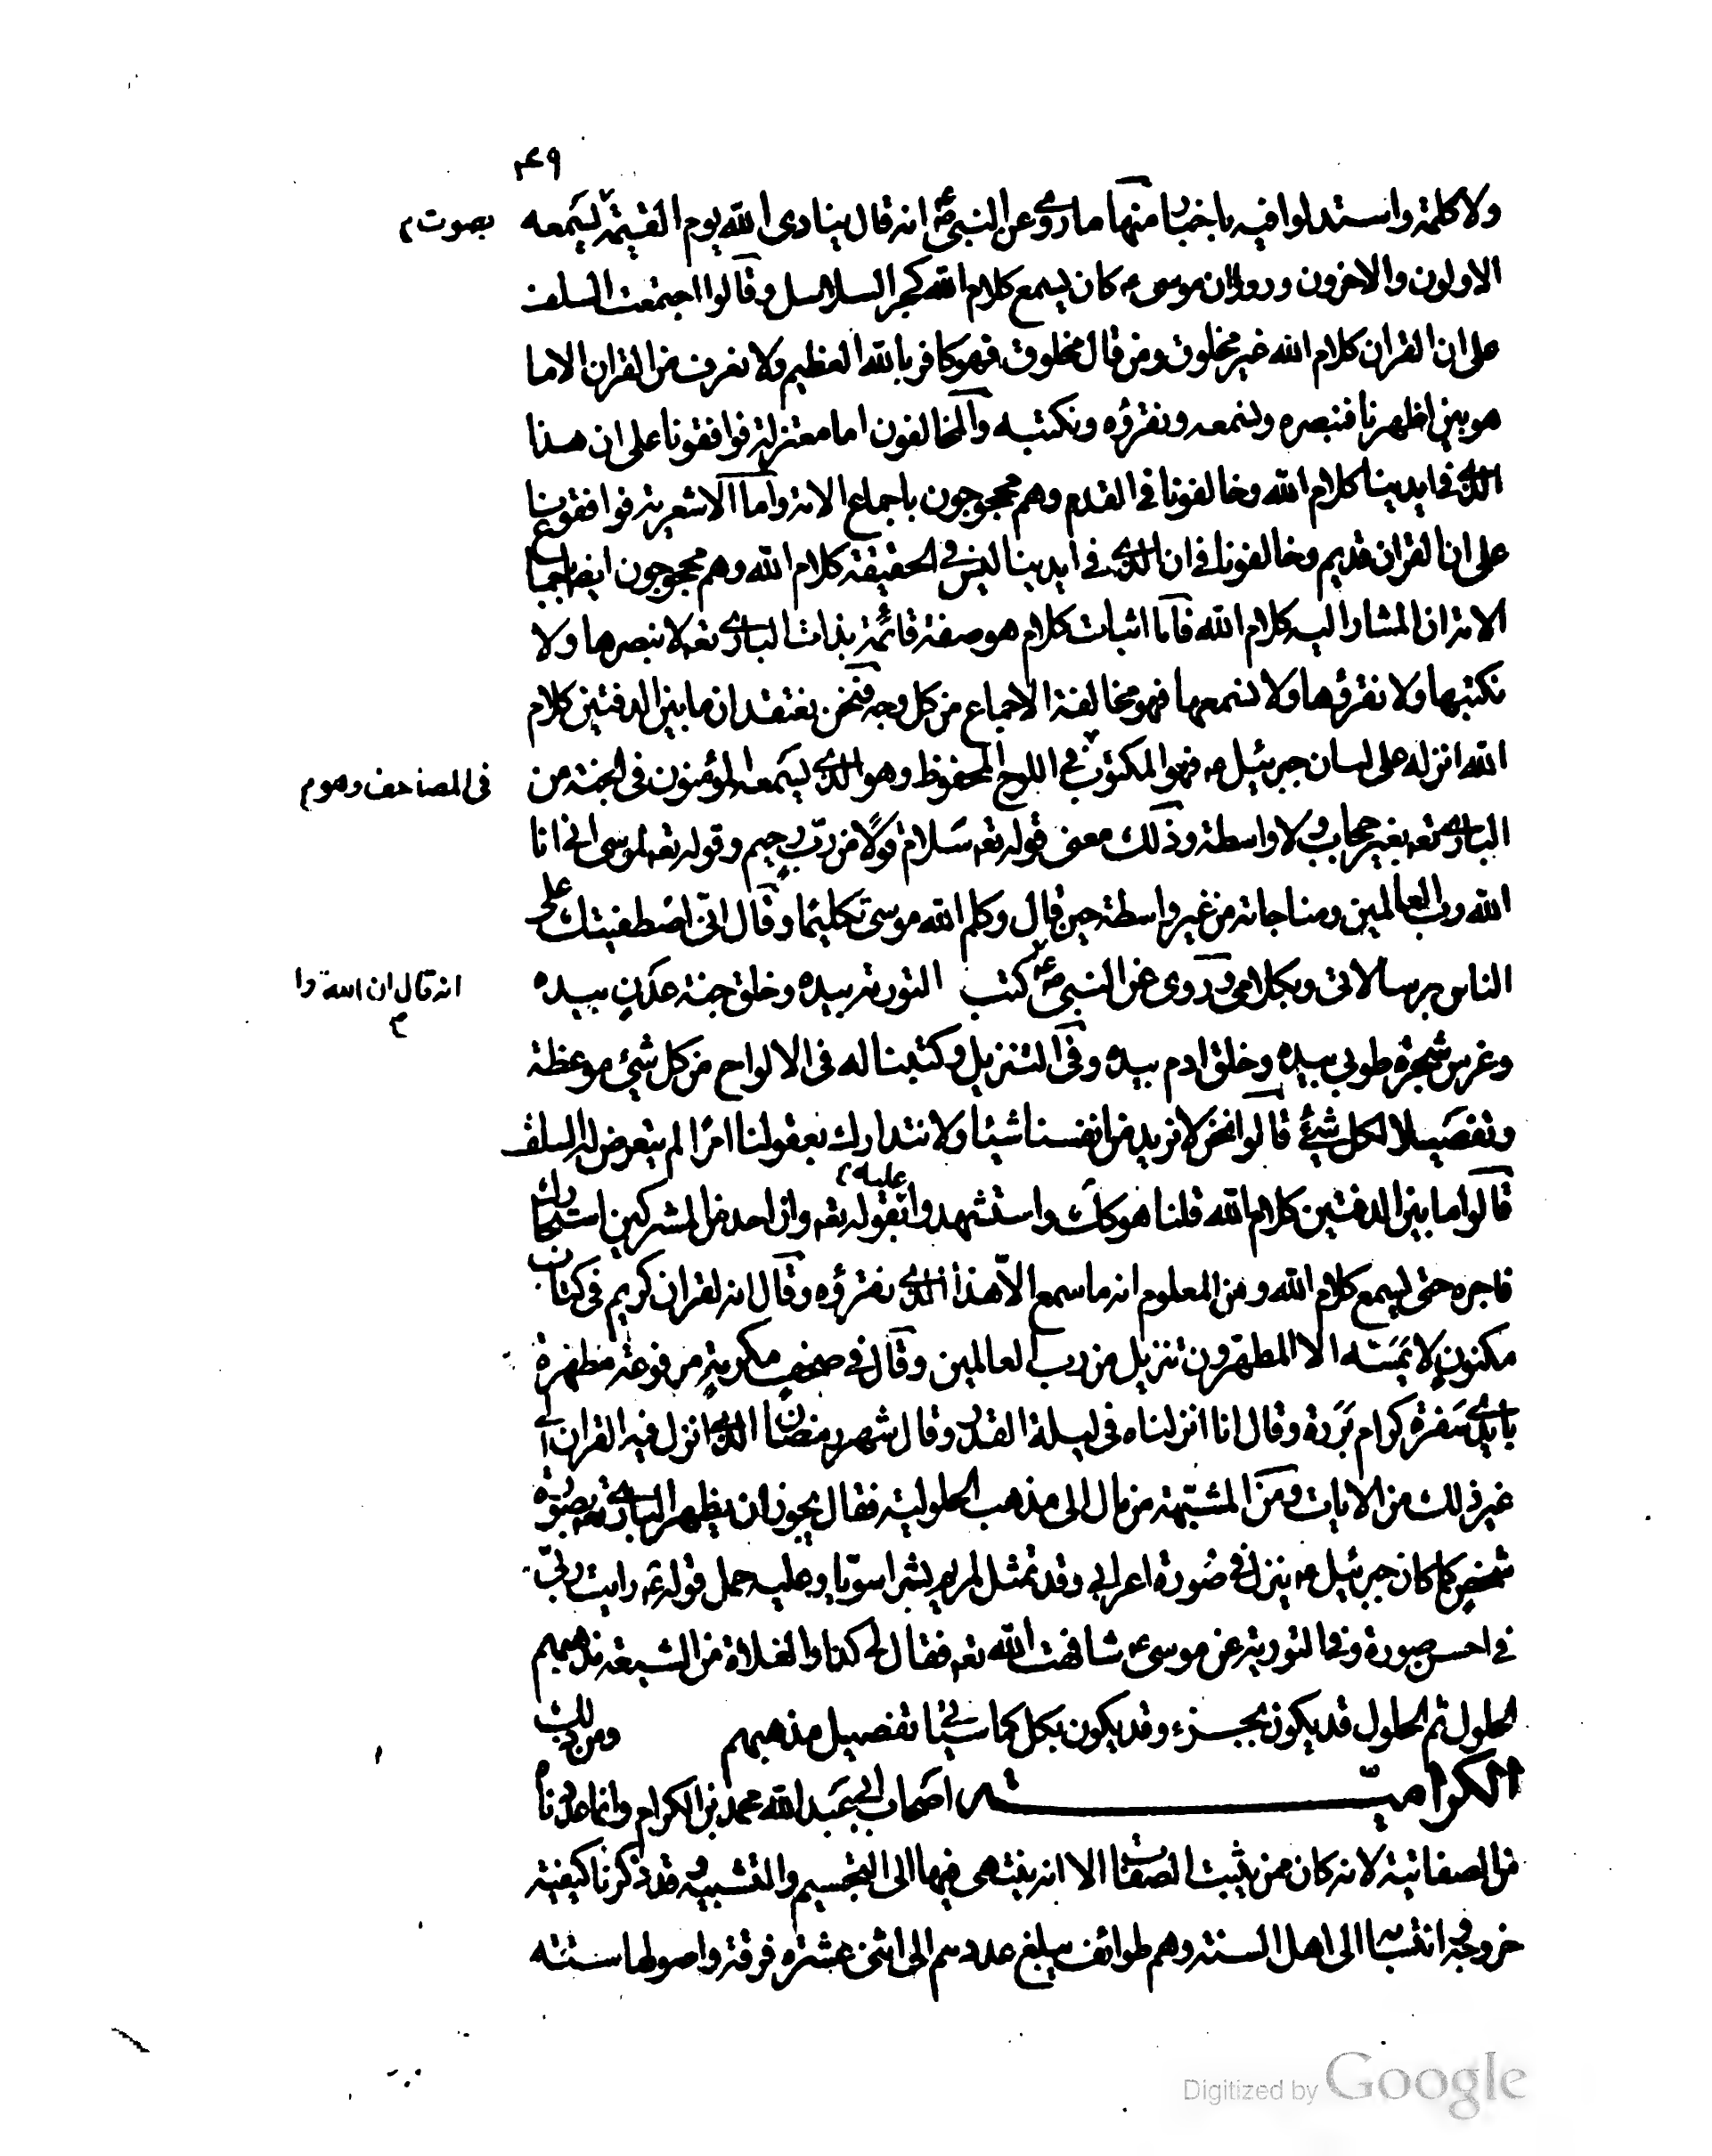 ٤٩
ولا كلمة واستدلوا فيه باخبار منها ما روى عن النبى صع انه قال ينادى الله يوم القيمة يسمعه
بصوت م
الاولون والاخرون ورووا ان موسى ع كان يسمع كلام الله كجر السلاسل وقالوا اجتمعت السلف
على ان القران كلام الله غير مخلوق ومن قال مخلوق فهو كافر بالله العظيم ولا نعرف من القران الا ما
هو بين اظهرنا فنبصره ونسمعه ونقرؤه ونكتبه والمخالفون اما معتزلة فوافقونا على ان هذا
الذى فى ايدينا كلام الله وخالفونا فى القدم وهم محجوجون باجماع الامة واما الاشعرية فوافقونا
على ان القران قديم وخالفونا فى ان الذى فى ايدينا ليس فى الحقيقة كلام الله وهم محجوجون ايضا باجماع
الامة ان المشار اليه كلام الله فاما اثبات كلام هو صفة قائمة بذات البارى تعه لا نبصرها ولا
نكتبها ولا نقرؤها ولا نسمعها فهو مخالفة الاجماع من كل وجه فنحن نعتقد ان ما بين الدفتين كلام
الله انزله على لسان جبرئيل ع فهو المكتوب فى اللوح المحفوظ وهو الذى يسمعه المؤمنون فى الجنة من
فى المصاحف وهو م
البارى تعه بغير حجاب ولا واسطة وذلك معنى قوله تعه سلام قولا من رب رحيم وقوله تعه لموسى انى انا
الله رب العالمين ومناجاته من غير واسطة حين قال وكلم الله موسى تكليما وقال انى اصطفيتك على
الناس برسالاتى وبكلامى وروى عن النبى صع كتب التورية بيده وخلق جنة عدن بيده
انه قال ان الله تعا م
وغرس شجرة طوبى بيده وخلق ادم بيده وفى التنزيل وكتبنا له فى الالواح من كل شئ موعظة
وتفصيلا لكل شئ قالوا فنحن لا نزيد من انفسنا شيئا ولا نتدارك بعقولنا امرا لم يتعرض له السلف
قالوا ما بين الدفتين كلام الله قلنا هو كذلك واستشهدوا عليه بقوله تعه وان احد من المشركين استجارك
فاجره حتى يسمع كلام الله ومن المعلوم انه ما سمع الا هذا الذى نقرؤه وقال انه لقران كريم فى كتاب
مكنون لا يمسه الا المطهرون تنزيل من رب العالمين وقال فى صحف مكرمة مرفوعة مطهرة
بايدى سفرة كرام بررة وقال انا انزلناه فى ليلة القدر وقال شهر رمضان الذى انزل فيه القران الى
غير ذلك من الايات ومن المشبهة من مال الى مذهب الحلولية فقال يجوز ان يظهر البارى تعه بصورة
شخص كما كان جبرئيل ع ينزل فى صورة اعرابى وقد تمثل لمريم بشرا سويا وعليه حمل قوله ع رايت ربى
فى احسن صورة وفى التورية عن موسى ع شافهت الله تعه فقال لى كذا والغلاة من الشيعة مذهبهم
الحلول ثم الحلول قد يكون بجزء وقد يكون بكل كما سياتى تفصيل مذهبهم ومن ذلك
الكرامية اصحاب ابى عبد الله محمد بن الكرام وانما عددناه
من الصفاتية لانه كان ممن يثبت الصفات الا انه ينتهى فيها الى التجسيم والتشبيه وقد ذكرنا كيفية
خروجه وانتسابه الى اهل السنة وهم طوائف يبلغ عددهم الى اثنى عشرة فرقة واصولها ستة
Digitized by Google